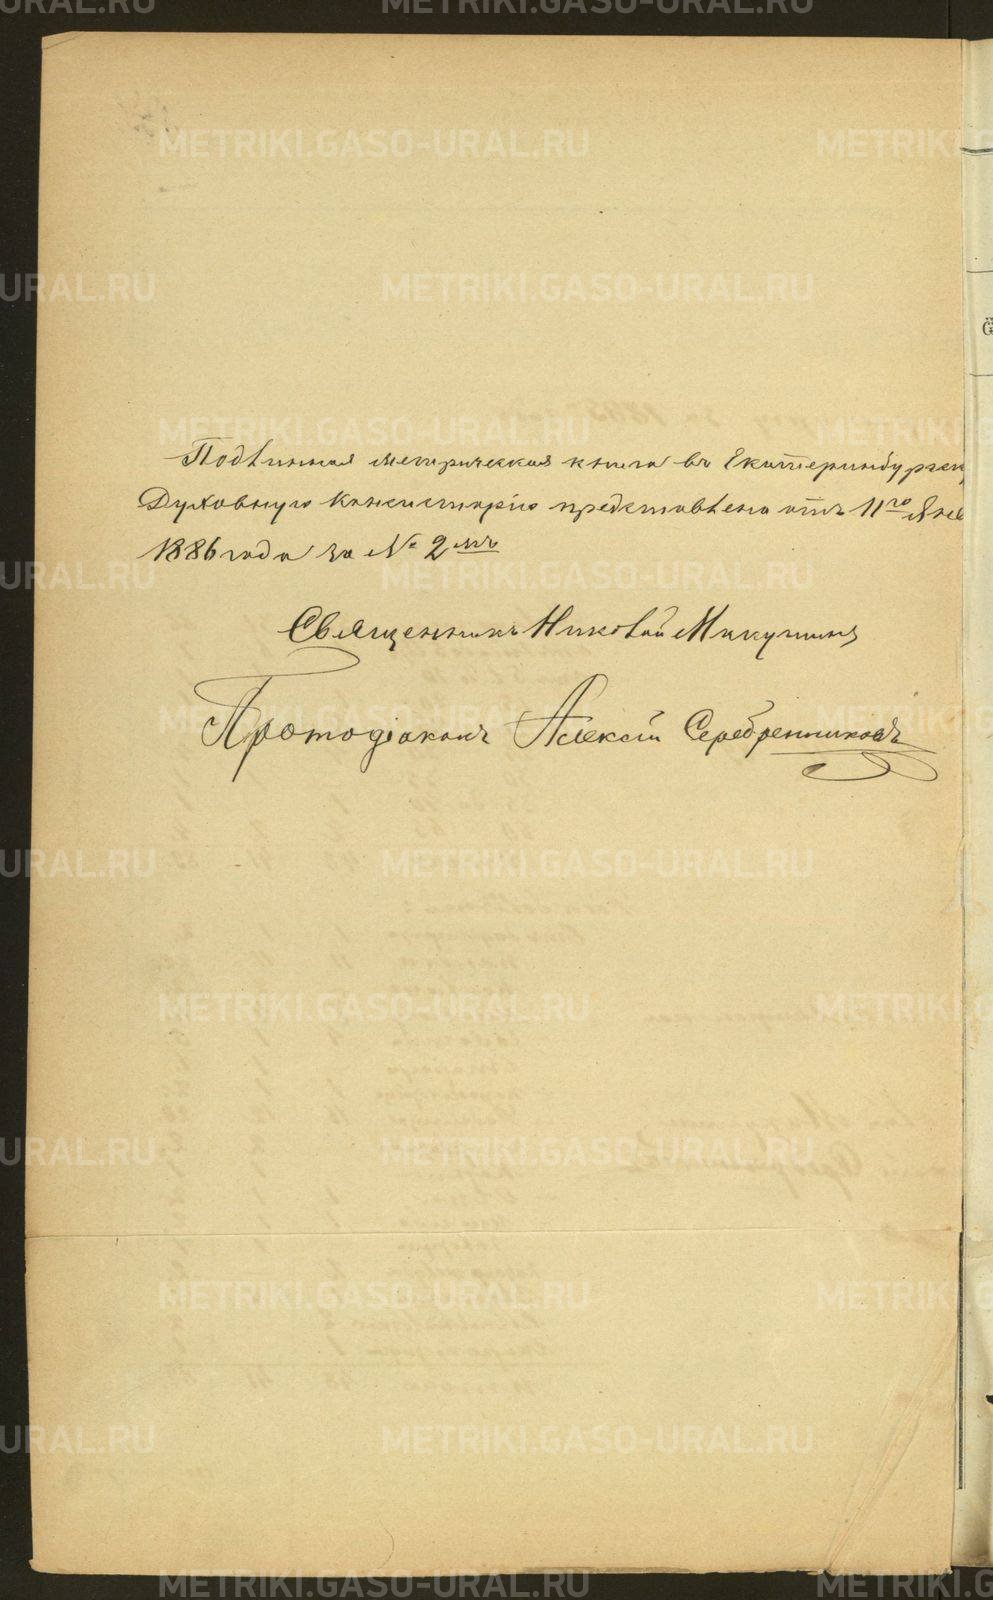 METRIKI.GASO-URAL.RU
Подлинная метрическая книга въ Екатеринбургск
Духовную Консисторію представлена отъ 11го Янв
1886 года за № 2мъ
Священникъ Николай Микушинъ
Протодіаконъ Алексѣй Серебренниковъ